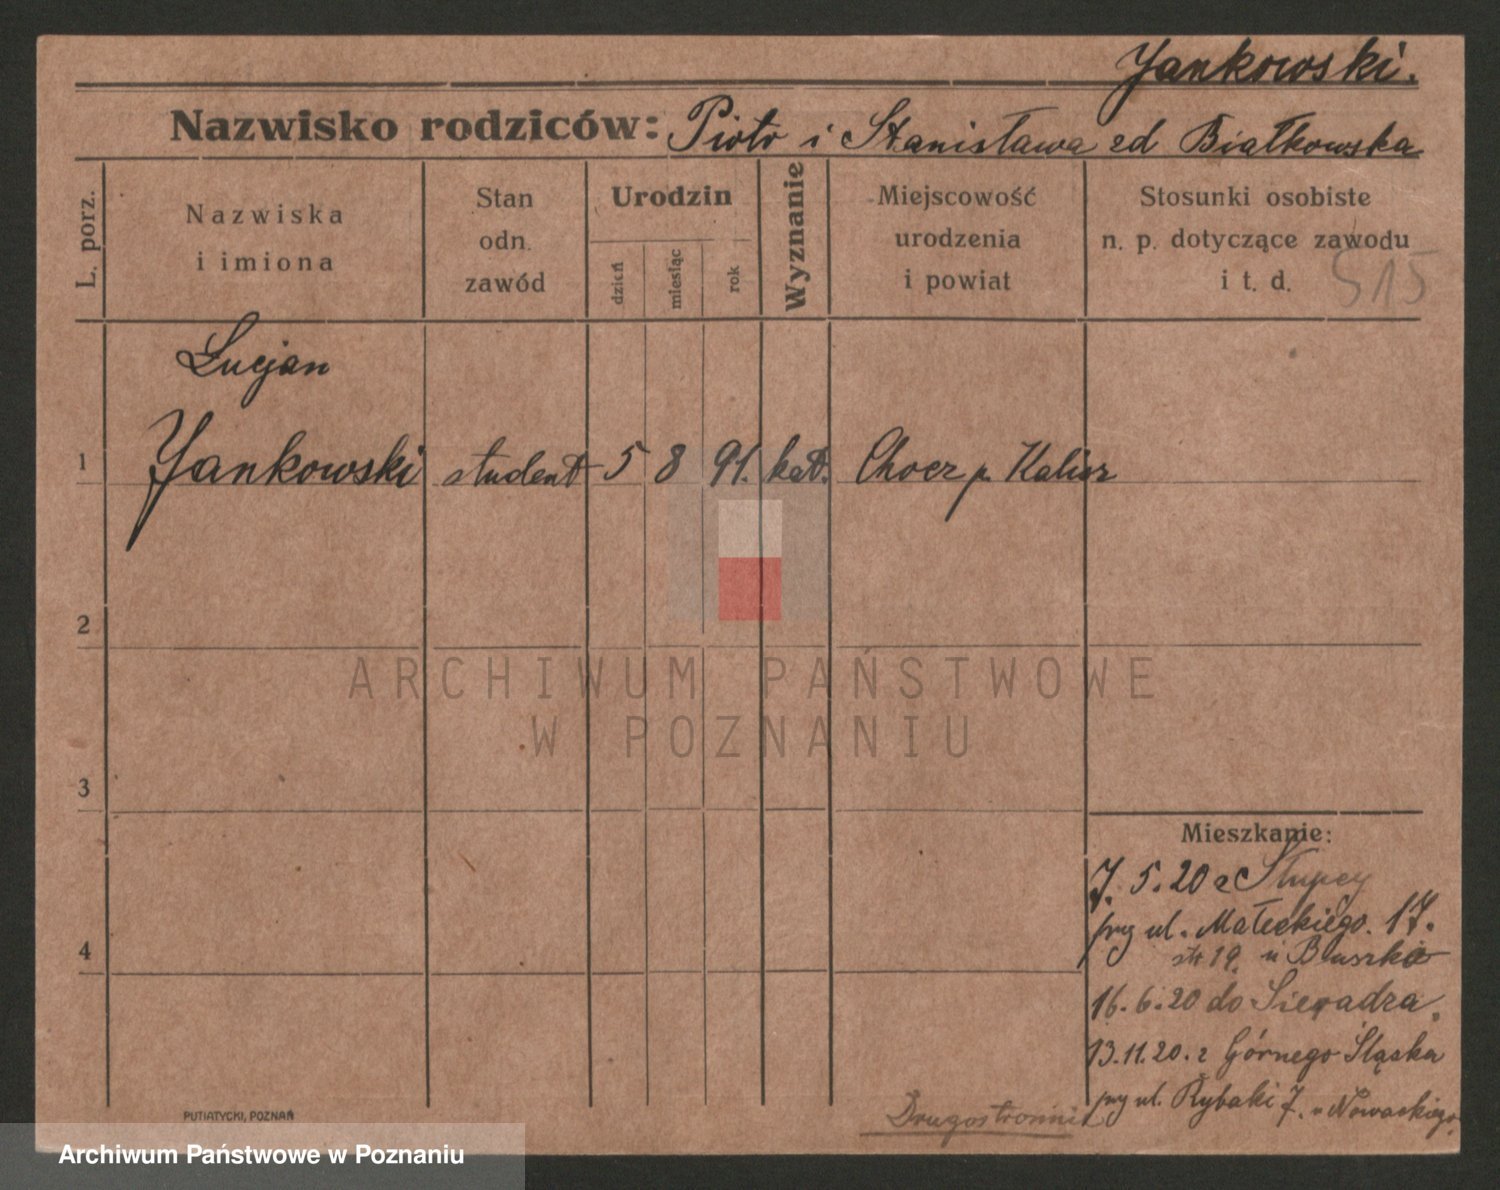 Jankowski.
Nazwisko rodziców: Piotr i Stanisława zd Białkowska
L. porz.
Nazwiska
i imiona
Stan
odn.
zawód
Urodzin
dzień
miesiąc
rok
Wyznanie
Miejscowość
urodzenia
i powiat
Stosunki osobiste
n. p. dotyczące zawodu
i t. d.
515
Lucjan
1 Jankowski student 5 8 91. kat. Chocz p. Kalisz
2
3
4
Mieszkanie:
7. 5. 20 z Słupcy
przy ul. Małeckiego. 17.
str 19. u Bluszke
16. 6. 20 do Sieradza.
13. 11. 20. z Górnego Śląska
przy ul. Rybaki 7. u Nowackiego.
Drugostronnie
PUTIATYCKI, POZNAŃ
ARCHIWUM PAŃSTWOWE
W POZNANIU
Archiwum Państwowe w Poznaniu